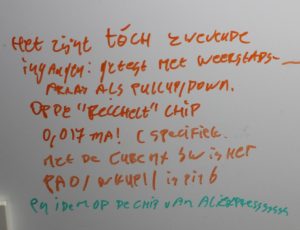 Het zijnt tóch zwevende
ingangen: getest met weerstands-
array als pullup/down.
op de "belichelt" chip
0,017 mA! (specifiek.
met de current bw is het
PAD/wkupl/is pin 6
en idem op de chip van Aliexpresssssss